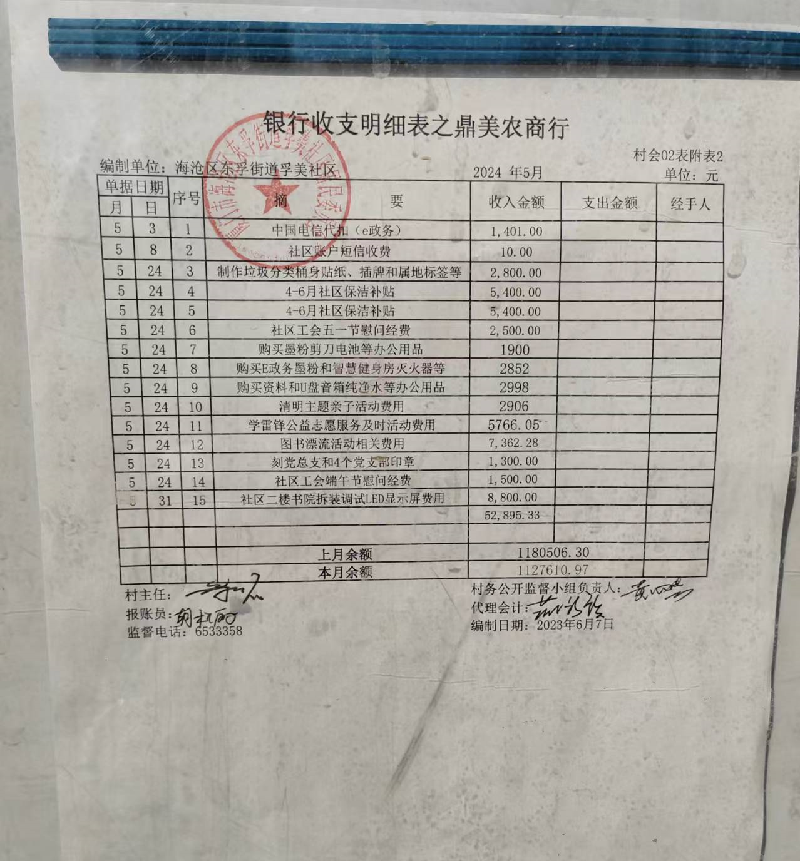 银行收支明细表之鼎美农商行
村会02表附表2
编制单位：海沧区东孚街道孚美社区 2024 年5月 单位：元
单据日期 序号 摘 要 收入金额 支出金额 经手人
月 日
5 3 1 中国电信代扣（e政务） 1,401.00
5 8 2 社区账户短信收费 10.00
5 24 3 制作垃圾分类桶身贴纸、插牌和属地标签等 2,800.00
5 24 4 4-6月社区保洁补贴 5,400.00
5 24 5 4-6月社区保洁补贴 5,400.00
5 24 6 社区工会五一节慰问经费 2,500.00
5 24 7 购买墨粉剪刀电池等办公用品 1900
5 24 8 购买E政务墨粉和智慧健身房灭火器等 2852
5 24 9 购买资料和U盘音箱纯净水等办公用品 2998
5 24 10 清明主题亲子活动费用 2906
5 24 11 学雷锋公益志愿服务及时活动费用 5766.05
5 24 12 图书漂流活动相关费用 7,362.28
5 24 13 刻党总支和4个党支部印章 1,300.00
5 24 14 社区工会端午节慰问经费 1,500.00
5 31 15 社区二楼书院拆装调试LED显示屏费用 8,800.00
52,895.33
上月余额 1180506.30
本月余额 1127610.97
村主任： 村务公开监督小组负责人：
报账员： 代理会计：
监督电话：6533358 编制日期：2023年6月7日